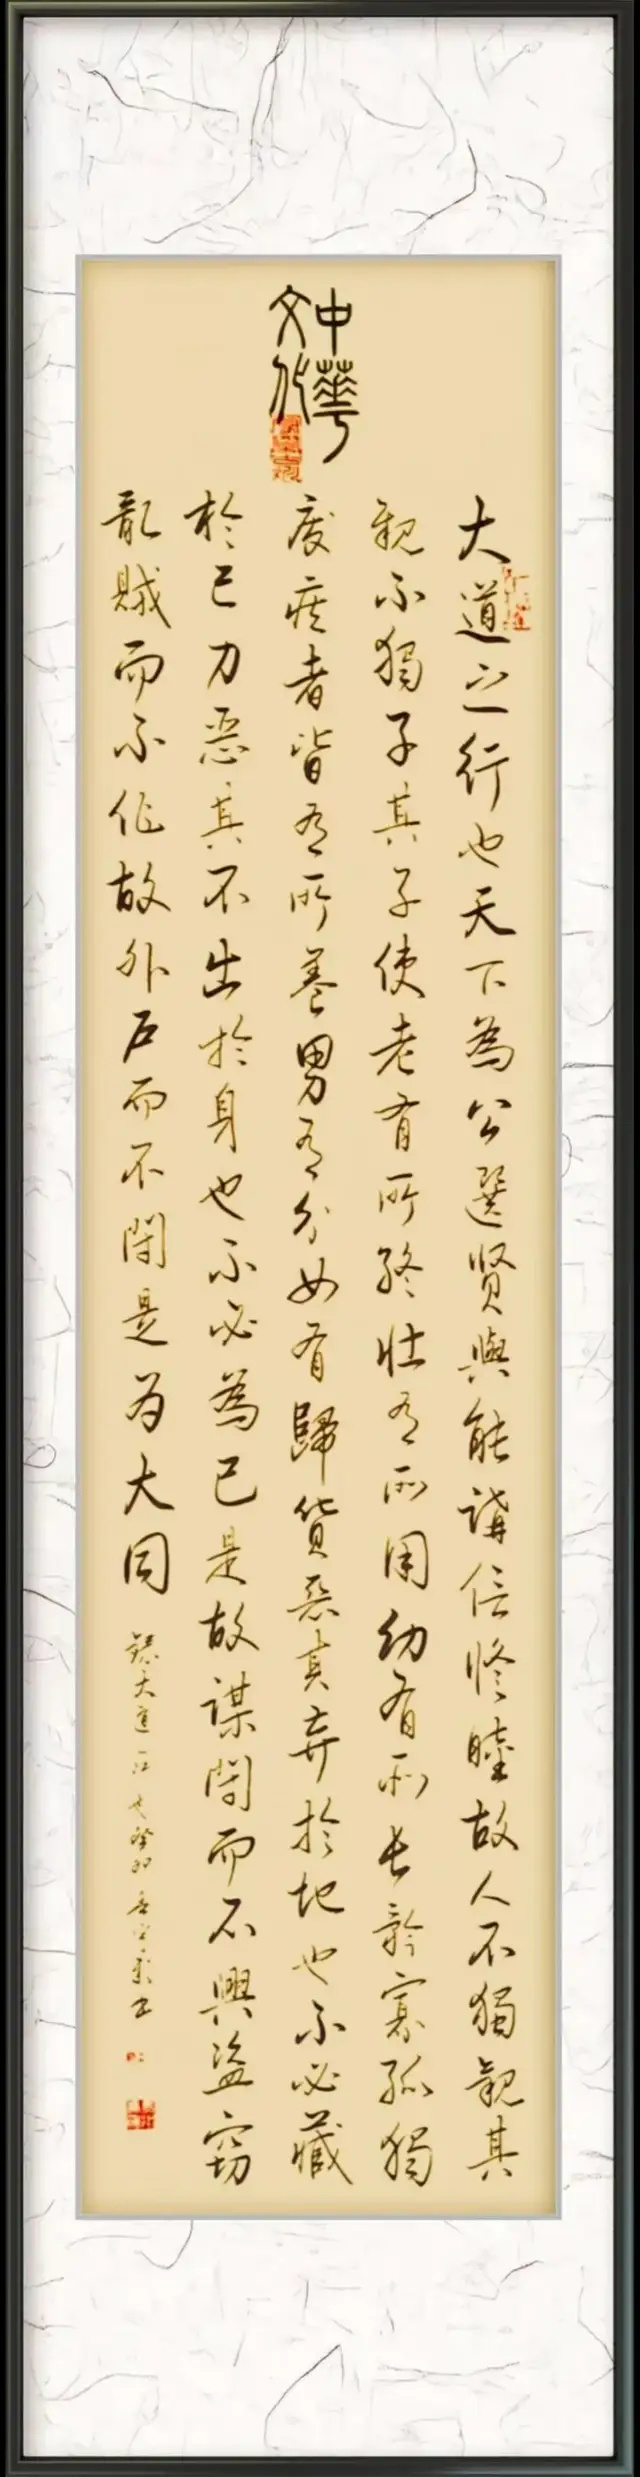 中華
文化
大道之行也天下為公選贤與能講信修睦故人不獨親其
親不獨子其子使老有所終壮有所用幼有所長矜寡孤獨
废疾者皆有所養男有分女有歸貨惡其弃於地也不必藏
於己力惡其不出於身也不必為己是故謀閉而不興盗窃
亂賊而不作故外户而不閉是为大同
錄大道行也癸卯